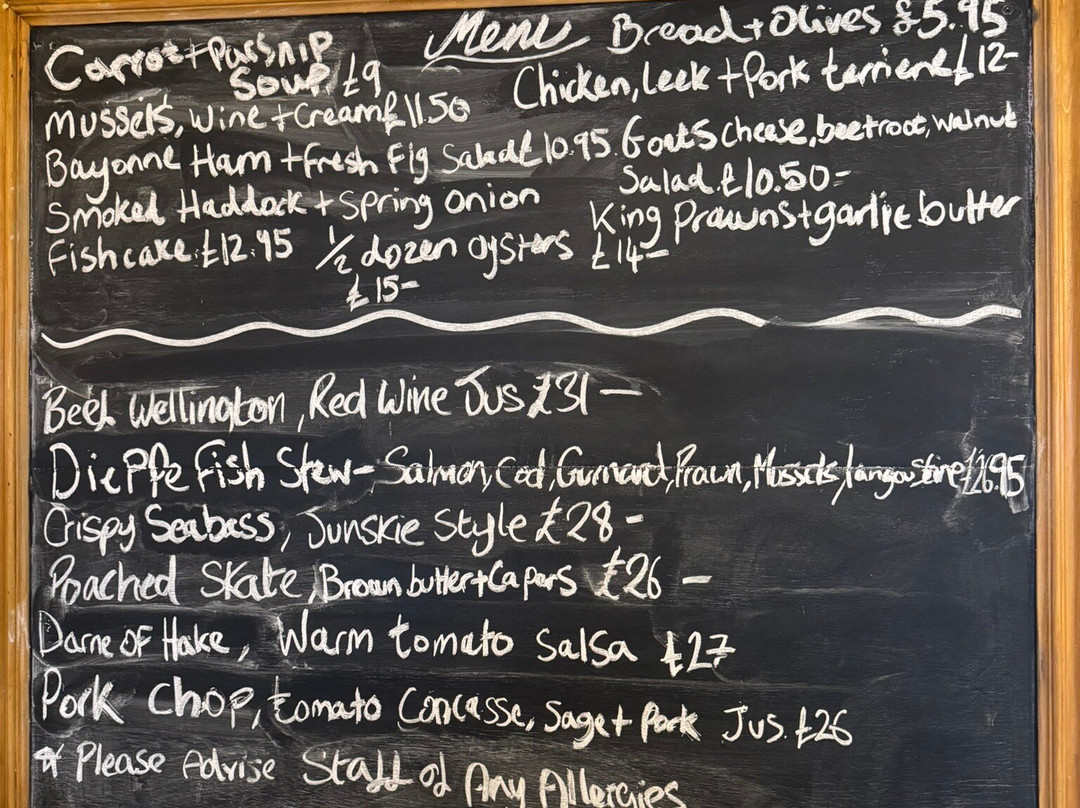 Menu
Carrot + Parsnip
Soup £9
Mussels, Wine + Cream £11.50
Bayonne Ham + fresh Fig Salad £10.95.
Smoked Haddock + Spring onion
Fishcake £12.95
1/2 dozen oysters
£15-
Bread + Olives £5.95
Chicken, leek + Pork terriene £12-
Goats cheese, beetroot, walnut
Salad £10.50-
King Prawns + garlic butter
£14-
Beef Wellington, Red Wine Jus £31-
Dieppe Fish Stew- Salmon, Cod, Gurnard, Prawn, Mussels, langoustine £26.95
Crispy Seabass, Junskie Style £28-
Poached Skate, Brown butter + Capers £26-
Darne of Hake, Warm tomato salsa £27
Pork Chop, tomato Concasse, Sage + Pork Jus. £26
* Please Advise Staff of Any Allergies